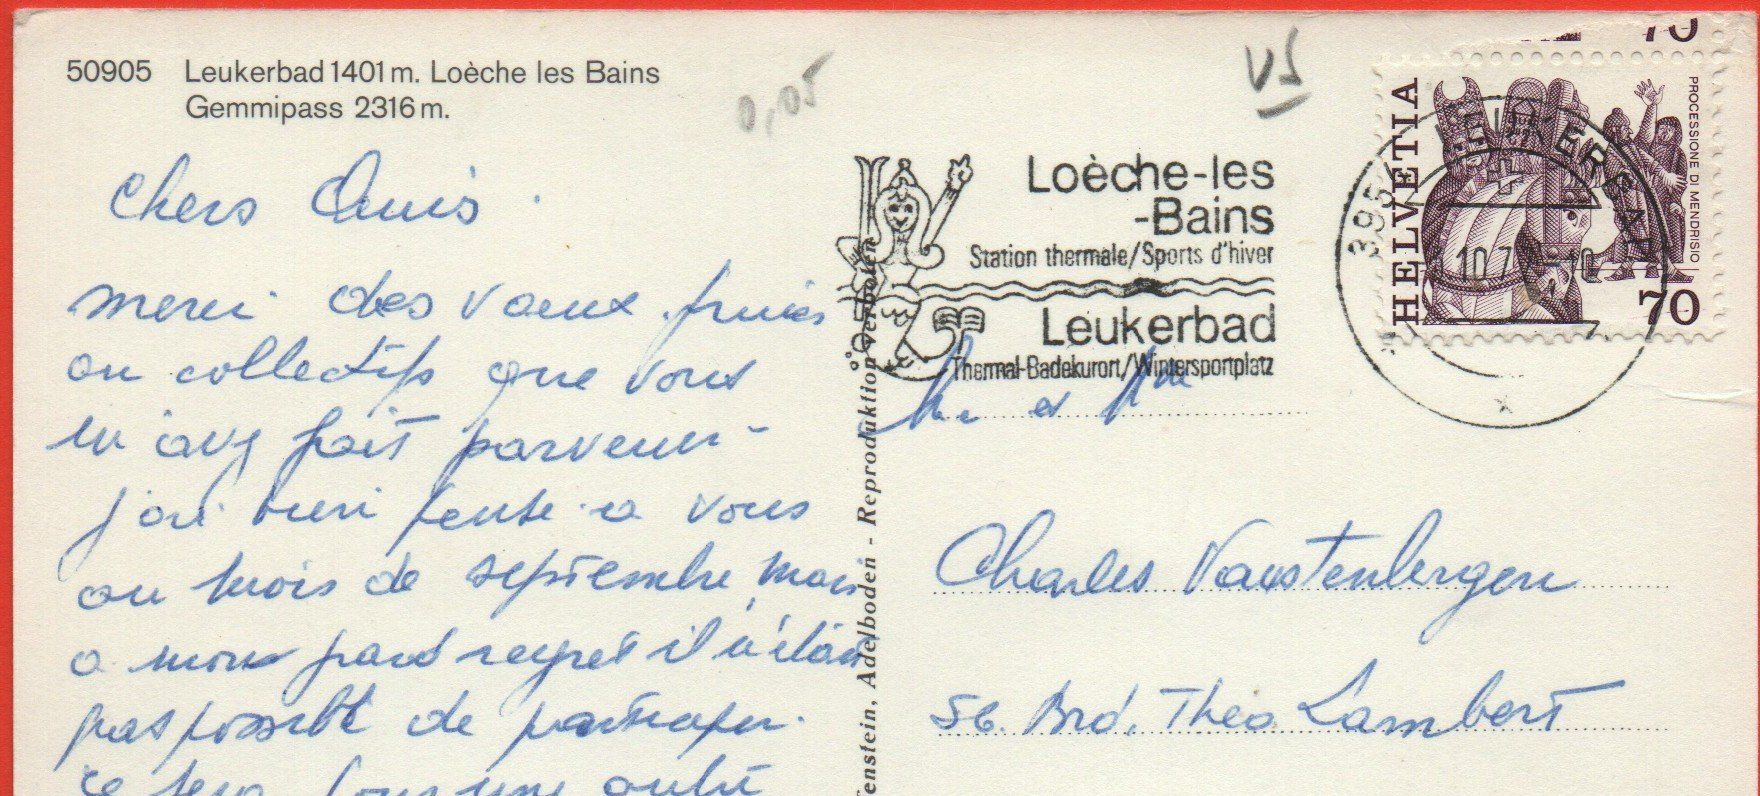 50905 Leukerbad 1401 m. Loèche les Bains
Gemmipass 2316 m.
0,05
VS
Chers Amis.
merci des vœux
ou collectifs que vous
m'avez fait parvenir -
j'ai bien pensé a vous
au mois de septembre, mais
a mon grand regret il n'était
pas possible de participer.
ce sera pour une autre
enstein, Adelboden - Reproduktion verboten
Loèche-les
-Bains
Station thermale/Sports d'hiver
Leukerbad
Thermal-Badekurort/Wintersportplatz
HELVETIA
PROCESSIONE DI MENDRISIO
70
70
395
10.7
Mr et Mme
Charles Vanstenbergen
56. Brd. Théo Lambert